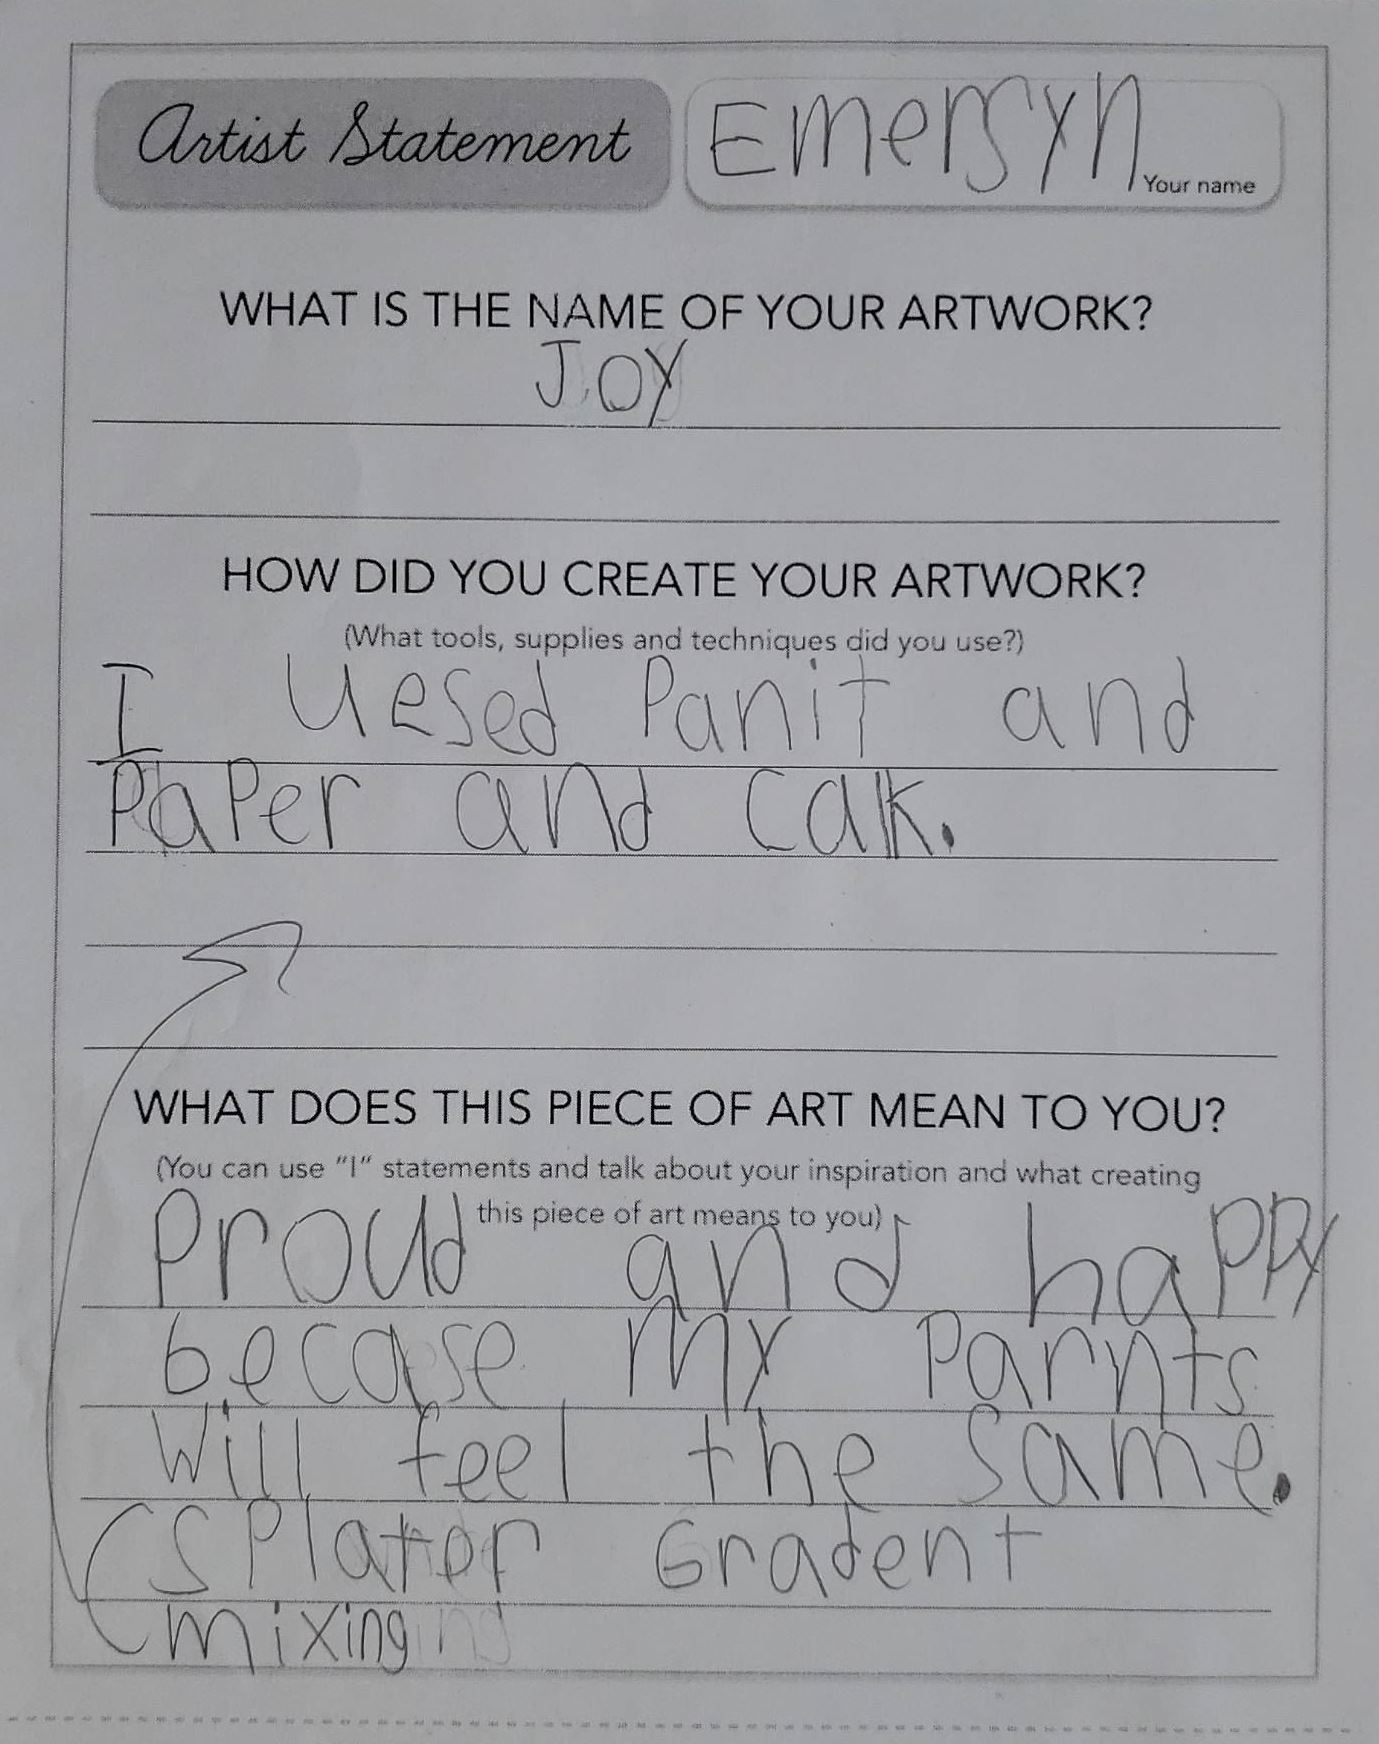 Artist Statement
Emersyn
Your name
WHAT IS THE NAME OF YOUR ARTWORK?
Joy
HOW DID YOU CREATE YOUR ARTWORK?
(What tools, supplies and techniques did you use?)
I Uesed Panit and
PaPer and calk.
WHAT DOES THIS PIECE OF ART MEAN TO YOU?
(You can use "I" statements and talk about your inspiration and what creating
this piece of art means to you)
Proud and haPPy
becase my Parnts
will feel the Same.
SPlater Gradent
mixing